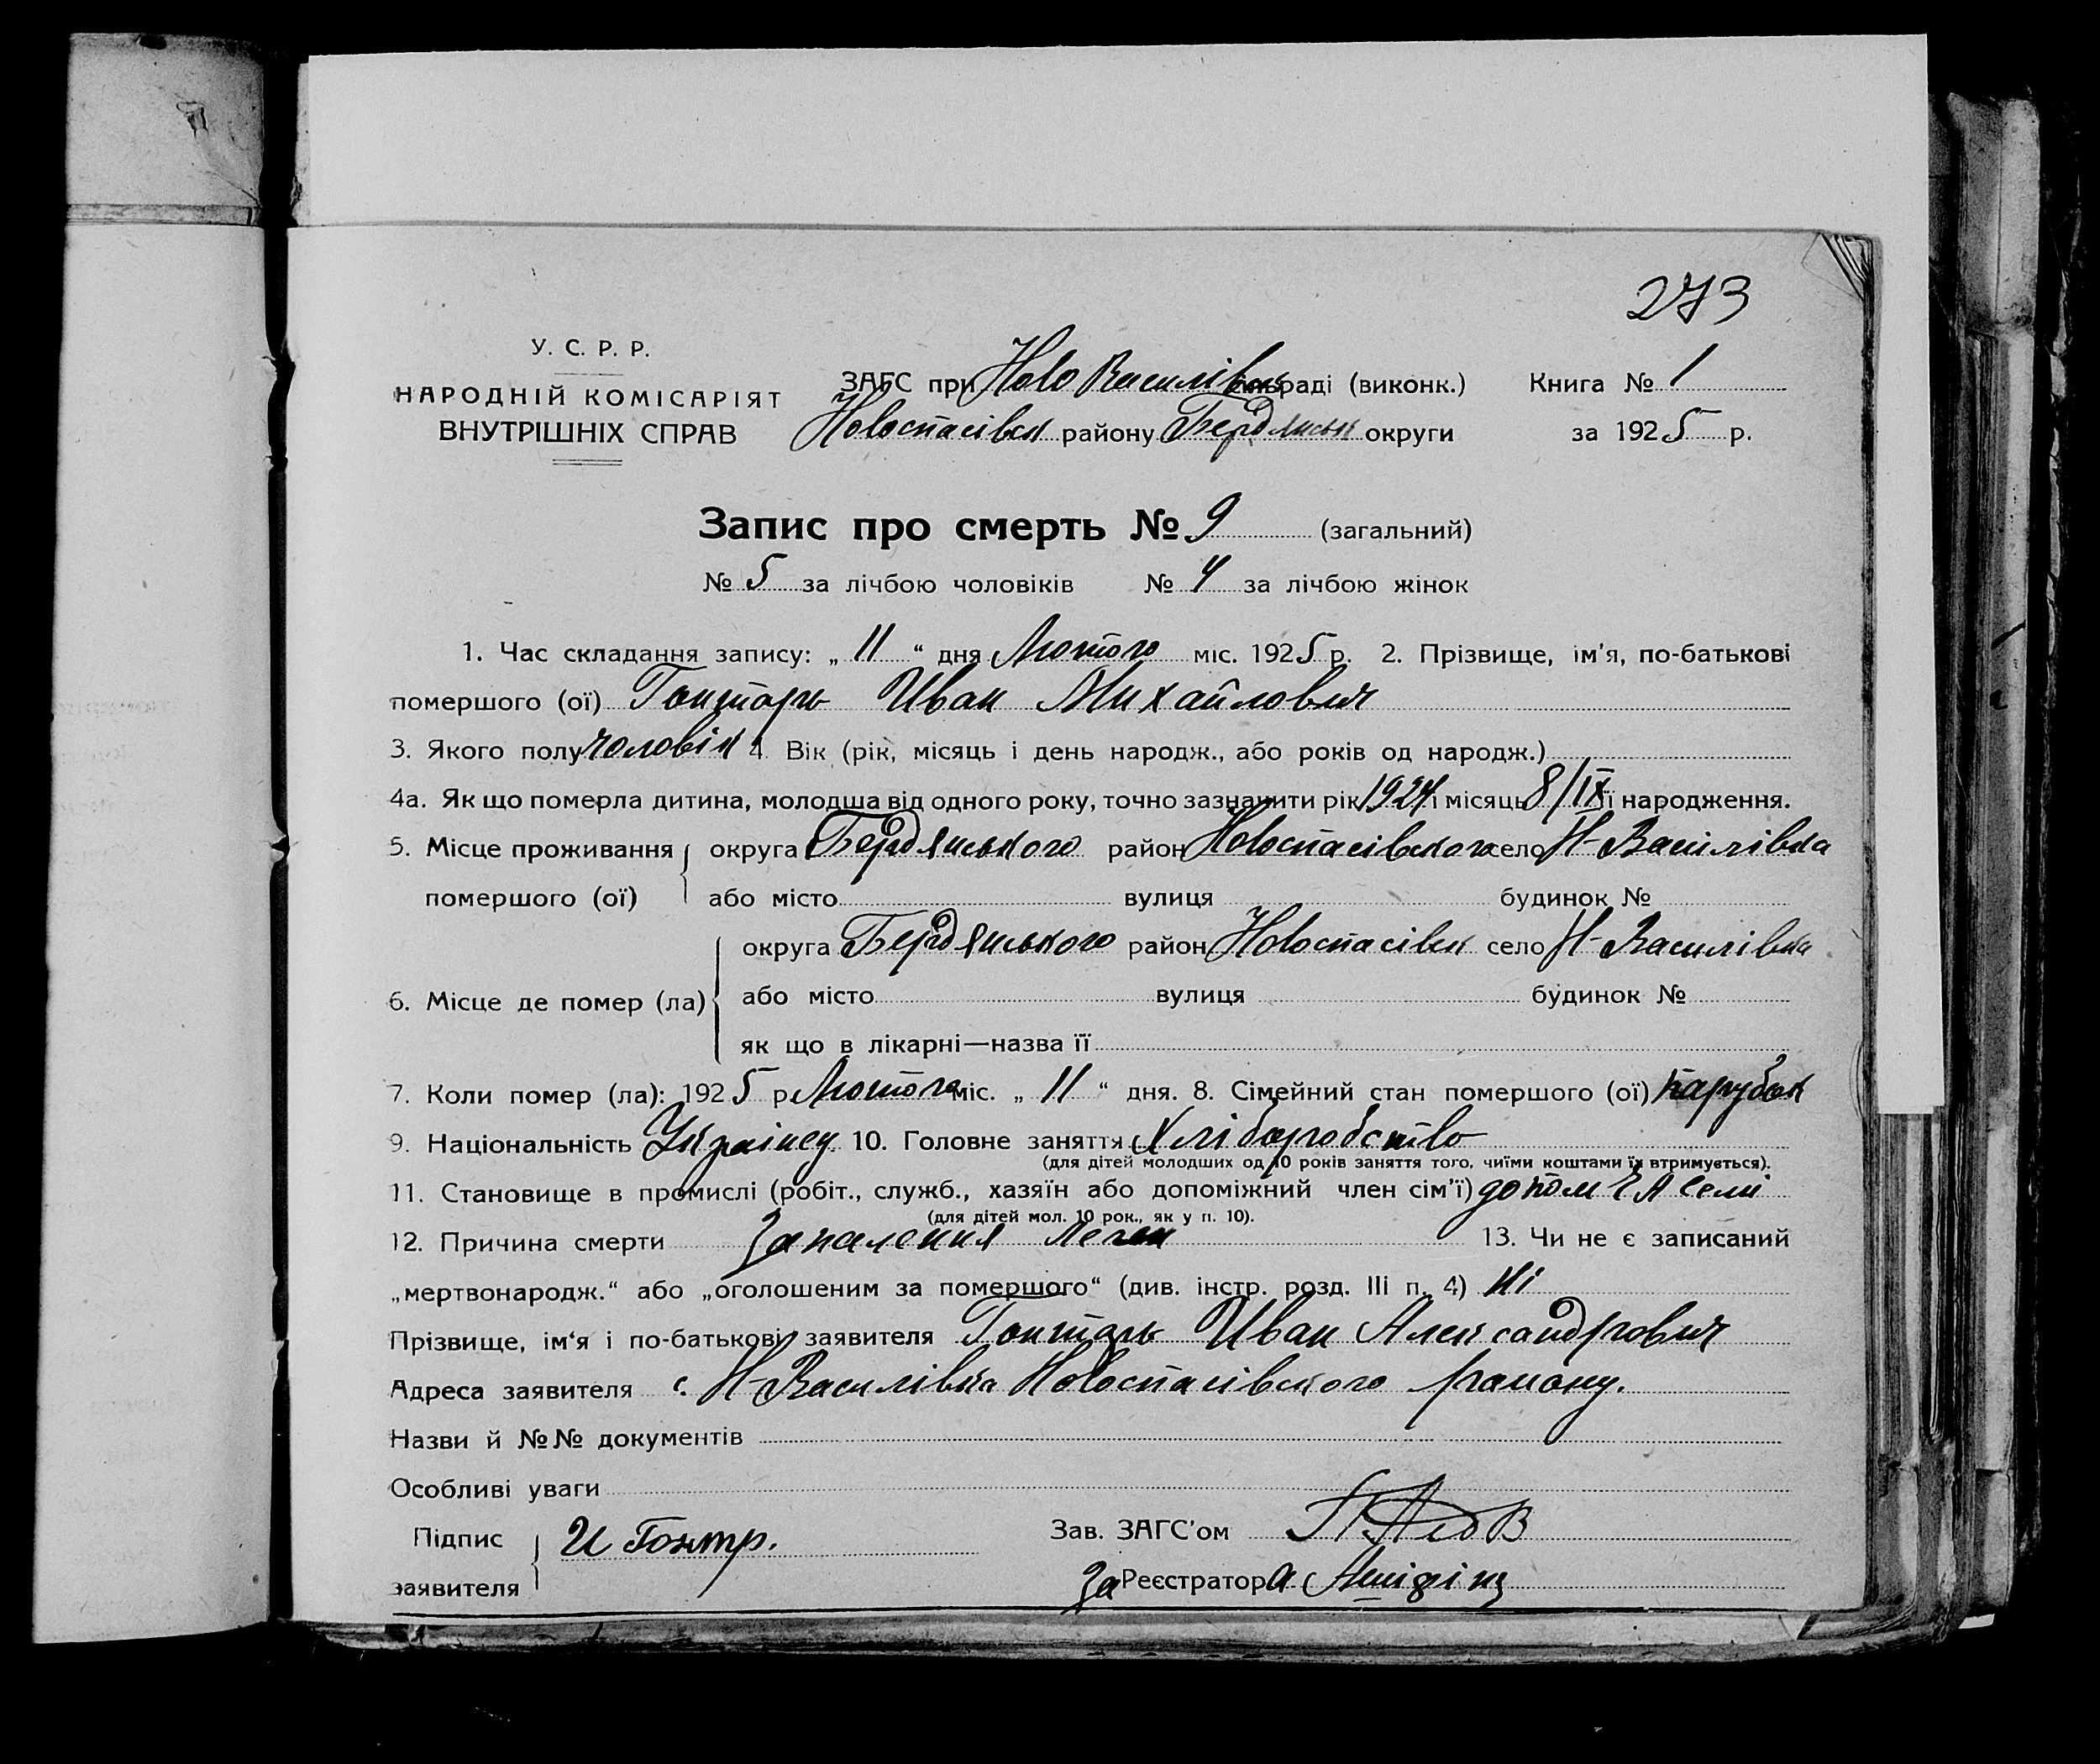 273
У. С. Р. Р.
НАРОДНІЙ КОМІСАРІЯТ
ВНУТРІШНІХ СПРАВ
ЗАГС при Ново Василівск раді (виконк.) Книга № 1
Новоспасівск району Бердянськ округи за 1925 р.
Запис про смерть № 9 (загальний)
№ 5 за лічбою чоловіків № 4 за лічбою жінок
1. Час складання запису: „ 11 “ дня Лютого міс. 1925 р. 2. Прізвище, ім'я, по-батькові
помершого (ої) Гонтарь Иван Михайлович
3. Якого полу чоловік 4. Вік (рік, місяць і день народж., або років од народж.)
4а. Як що померла дитина, молодша від одного року, точно зазначити рік 1924 і місяць 8/IX її народження.
5. Місце проживання округа Бердянського район Новоспасівского село Н-Василівка
помершого (ої) або місто вулиця будинок №
округа Бердянського район Новоспасівск село Н-Василівка
6. Місце де помер (ла) або місто вулиця будинок №
як що в лікарні—назва її
7. Коли помер (ла): 1925 р. Лютого міс. „ 11 “ дня. 8. Сімейний стан помершого (ої) парубок
9. Національність Українец 10. Головне заняття Хліборобство
(для дітей молодших од 10 років заняття того, чиїми коштами їх втримується).
11. Становище в промислі (робіт., служб., хазяїн або допоміжний член сім'ї) допом ЧА семі
(для дітей мол. 10 рок., як у п. 10).
12. Причина смерти Запалення Леген 13. Чи не є записаний
„мертвонародж.“ або „оголошеним за помершого“ (див. інстр. розд. III п. 4) Ні
Прізвище, ім'я і по-батькові заявителя Гонтарь Иван Александрович
Адреса заявителя с. Н-Василівка Новоспасівского району.
Назви й №№ документів
Особливі уваги
Підпис И Гонтр. Зав. ЗАГС'ом
заявителя За Реєстратора